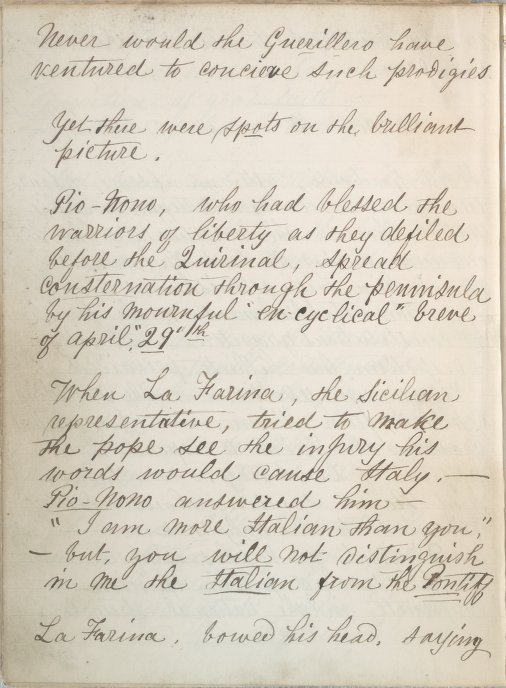 Never would the Guerillero have
ventured to concieve such prodigies
Yet there were spots on the brilliant
picture.
Pio-Nono, who had blessed the
warriors of liberty as they defiled
before the Quirinal, spread
consternation through the peninsula
by his mournful "en-cyclical" breve
of april", 29'th
When La Farina, the Sicilian
representative, tried to make
the pope see the injury his
words would cause Italy. —
Pio-Nono answered him —
"I am more Italian than you,"
— but, you will not distinguish
in me the Italian from the Pontiff
La Farina, bowed his head, saying